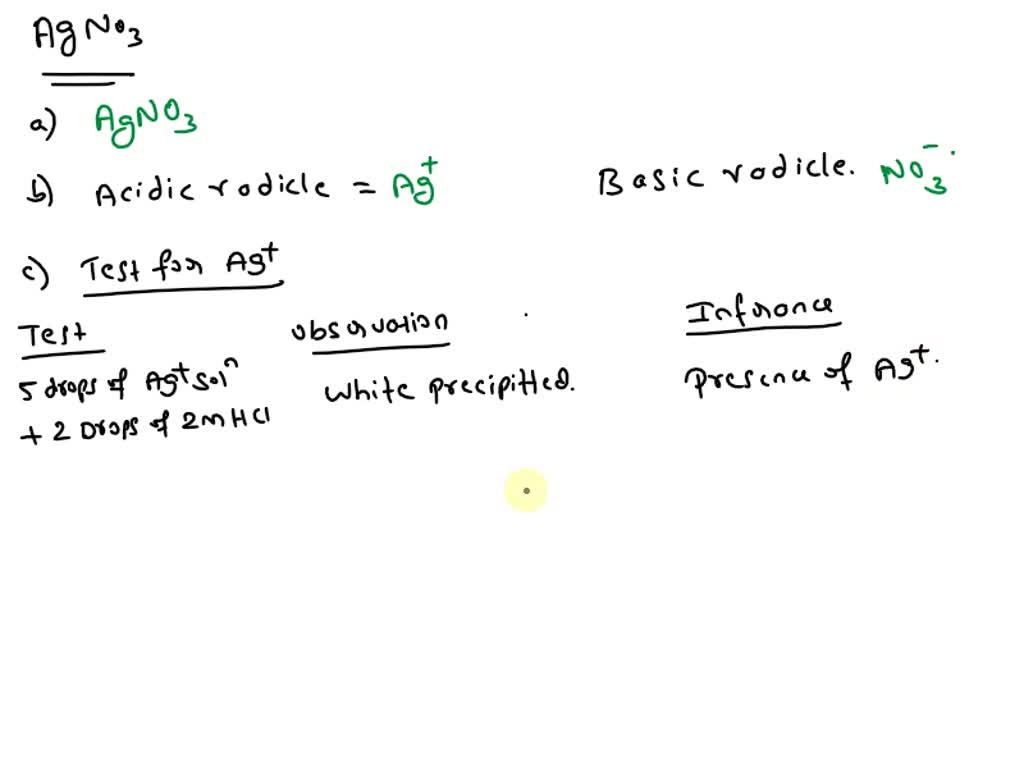 AgNO3
a) AgNO3
b) Acidic rodicle = Ag+ Basic rodicle. NO3-
c) Test for Ag+
Test observation Inference
5 drops of Ag+ soln white precipitted. Presence of Ag+.
+ 2 Drops of 2M HCl